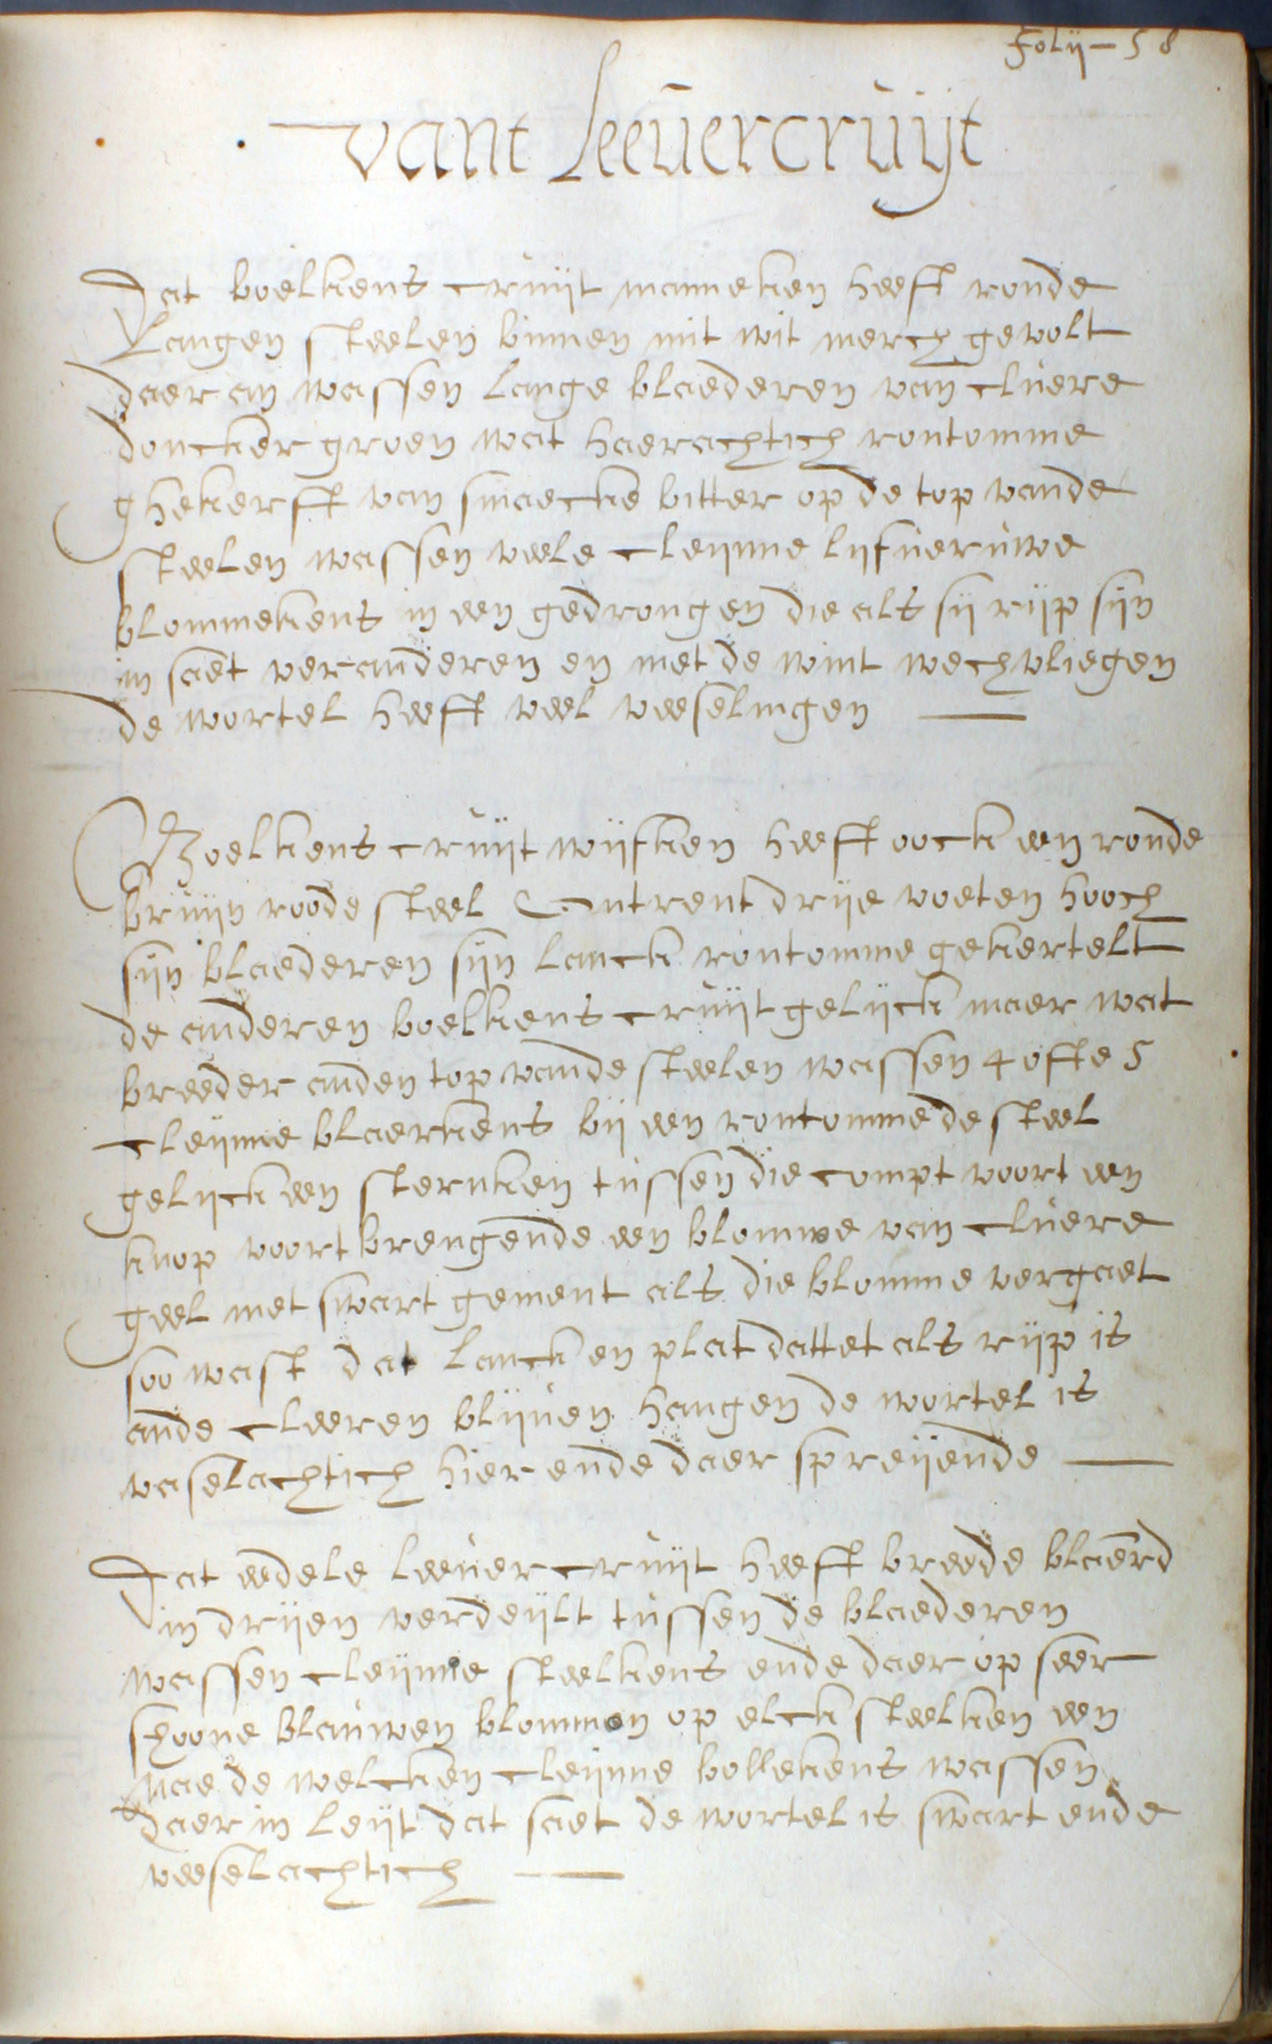 Folij - 58
vant Leevercruijt
Dat boelkens cruijt manneken heeft ronde
Langen steelen binnen mit wit merch gevolt
daer an wassen lange blaederen van cluere
doncker groen wat haerachtich rontomme
ghekerft van smaecke bitter op de top vande
steelen wassen veele cleijnne lijfueruwe
blommekens in een gedrongen die als sij rijp sijn
in saet veranderen en met de wint wech vliegen
de wortel heeft veel veeselingen
Boelkens cruijt wijfken heeft oock een ronde
bruijn roode steel Omtrent drije voeten hooch
sijn blaederen sijn lanck rontomme gekertelt
de anderen boelkens cruijt gelijck maer wat
breeder anden top vande steelen wassen 4 ofte 5
cleijnne blaerkens bij een rontomme de steel
gelijck een sternken tussen die compt voort een
knop voort brengende een blomme van cluere
geel met swart gement als die blomme vergaet
soo wast dat lanck en plat dattet als rijp is
ande cleeren blijven hangen de wortel is
vaselachtich hier ende daer spreijende
Dat eedele leever cruijt heeft breede blaerd
in drijen verdeijlt tussen de blaederen
wassen cleijnne steelkens ende daer op seer
schoone blauwen blommen op elck steelken een
nae de welcken cleijnne bollekens wassen
daer in leijt dat saet de wortel is swart ende
veeselachtich